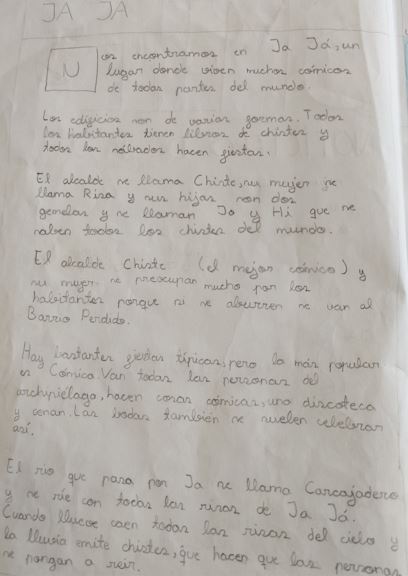 JA JA
Nos encontramos en Ja Já, un
lugar donde viven muchos cómicos
de todas partes del mundo.
Los edificios son de varias formas. Todos
los habitantes tienen libros de chistes y
todos los sábados hacen fiestas.
El alcalde se llama Chiste, su mujer se
llama Risa y sus hijas son dos
gemelas y se llaman Jo y Hi que se
saben todos los chistes del mundo.
El alcalde Chiste (el mejor cómico) y
su mujer se preocupan mucho por los
habitantes porque si se aburren se van al
Barrio Perdido.
Hay bastantes fiestas típicas, pero la más popular
es Cómica. Van todas las personas del
archipiélago, hacen cosas cómicas, una discoteca
y cenan. Las bodas también se suelen celebrar
así.
El rio que pasa por Ja se llama Carcajadero
y se rie con todas las risas de Ja Já.
Cuando llueve caen todas las risas del cielo y
la lluvia emite chistes, que hacen que las personas
se pongan a reir.